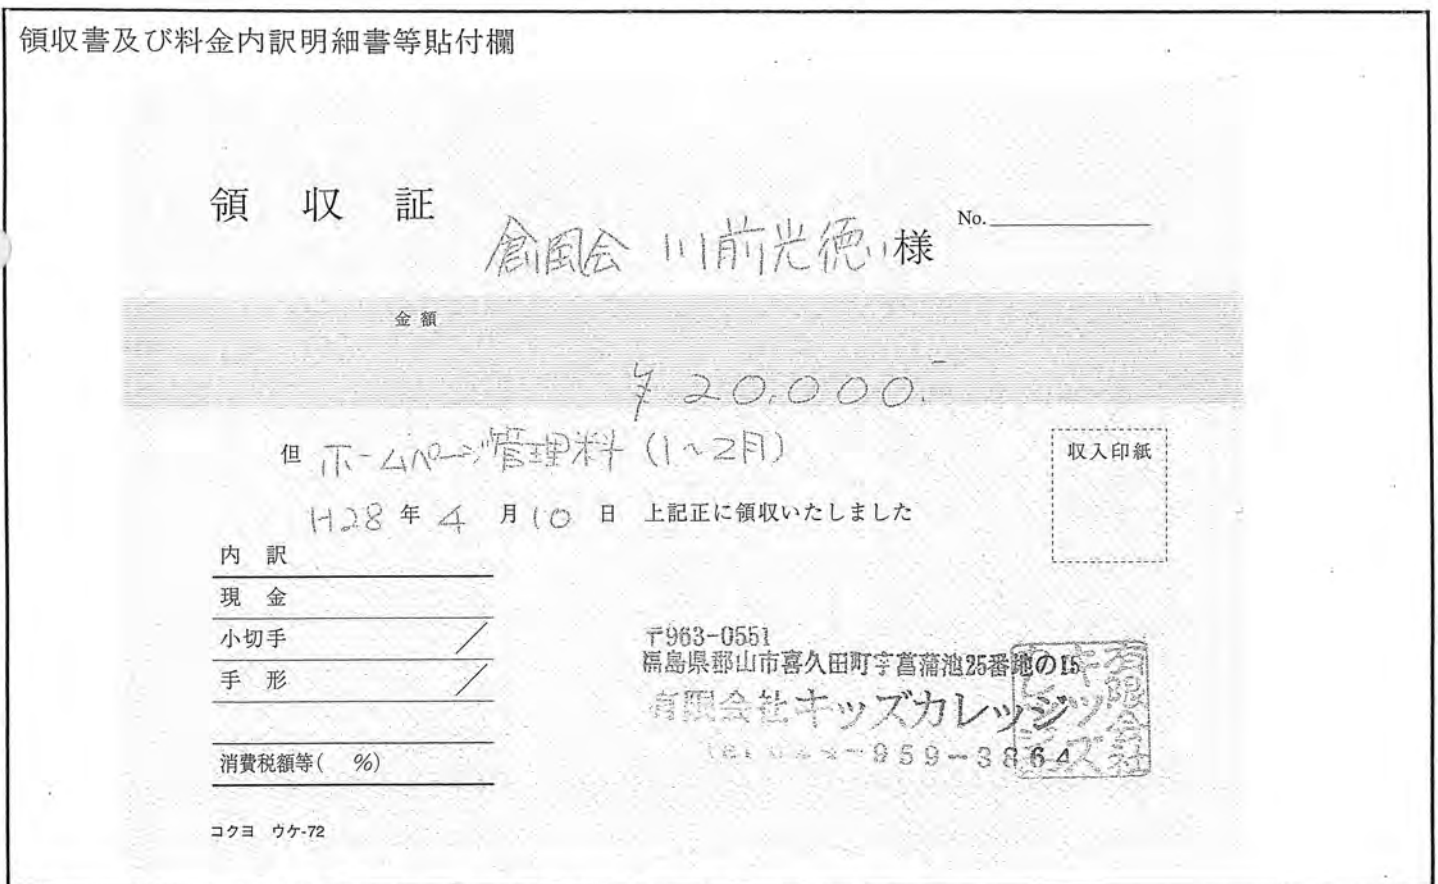 領収書及び料金内訳明細書等貼付欄
領収証
創風会 川前光徳 様
No.
金額
¥20,000.-
但 ホームページ管理料(1~2月)
収入印紙
H28年4月10日 上記正に領収いたしました
内訳
現金
小切手
手形
消費税額等( %)
〒963-0551
福島県郡山市喜久田町字菖蒲池25番地の15
有限会社キッズカレッジ
959-3864
有限会社
キッズ
カレッジ
コクヨ ウケ-72